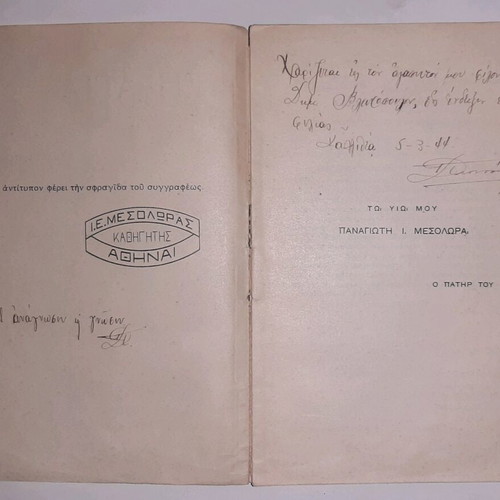 ἀντίτυπον φέρει τὴν σφραγῖδα τοῦ συγγραφέως
Ι.Ε.ΜΕΣΟΛΩΡΑΣ
ΚΑΘΗΓΗΤΗΣ
ΑΘΗΝΑΙ
ἀνάγνωσιν ἡ γνῶσιν
Χαρίζεται εἰς τὸν ἀγαπητόν μου φίλον
εἰς ἔνδειξιν
φιλίας
5-3-44
ΤΩ ΥΙΩ ΜΟΥ
ΠΑΝΑΓΙΩΤΗ Ι. ΜΕΣΟΛΩΡΑ,
Ο ΠΑΤΗΡ ΤΟΥ